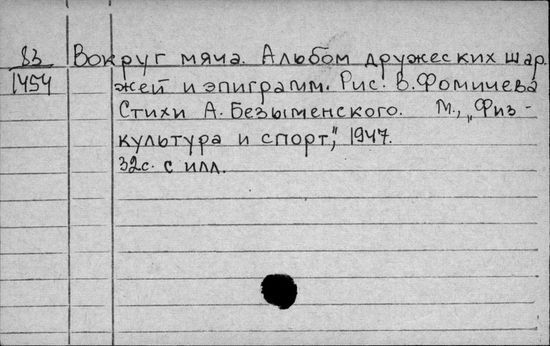 83 Вокруг мяча. Альбом дружеских шар
1454 жей и эпиграмм. Рис. В. Фомичева
Стихи А. Безыменского. М., „Физ-
культура и спорт", 1947.
32с. с илл.